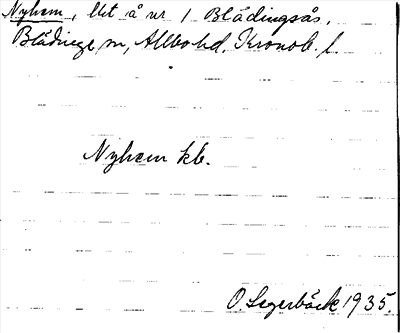 Nyhem, lht å nr 1 Blädingsås,
Blädinge sn, Allbo hd. Kronob. l.
Nyhem kb.
O. Segerbäck 1935.